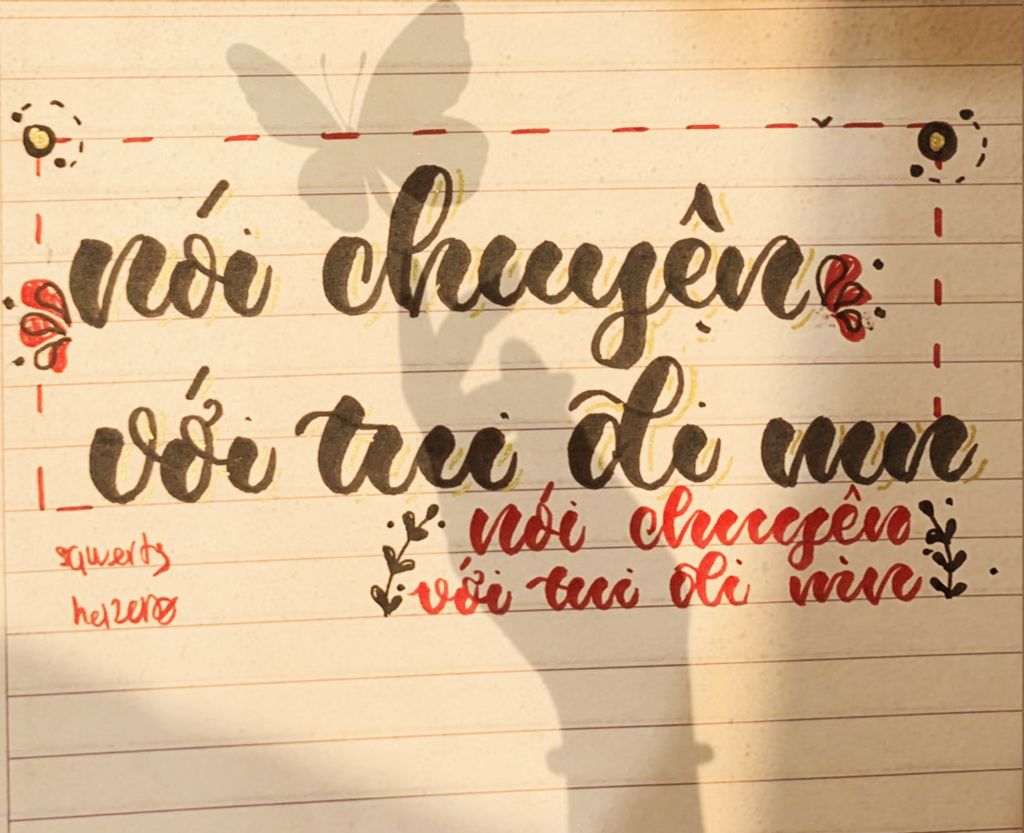 nói chuyện
với tui đi mn
nói chuyên
với tui đi mn
sqwerty
heizero